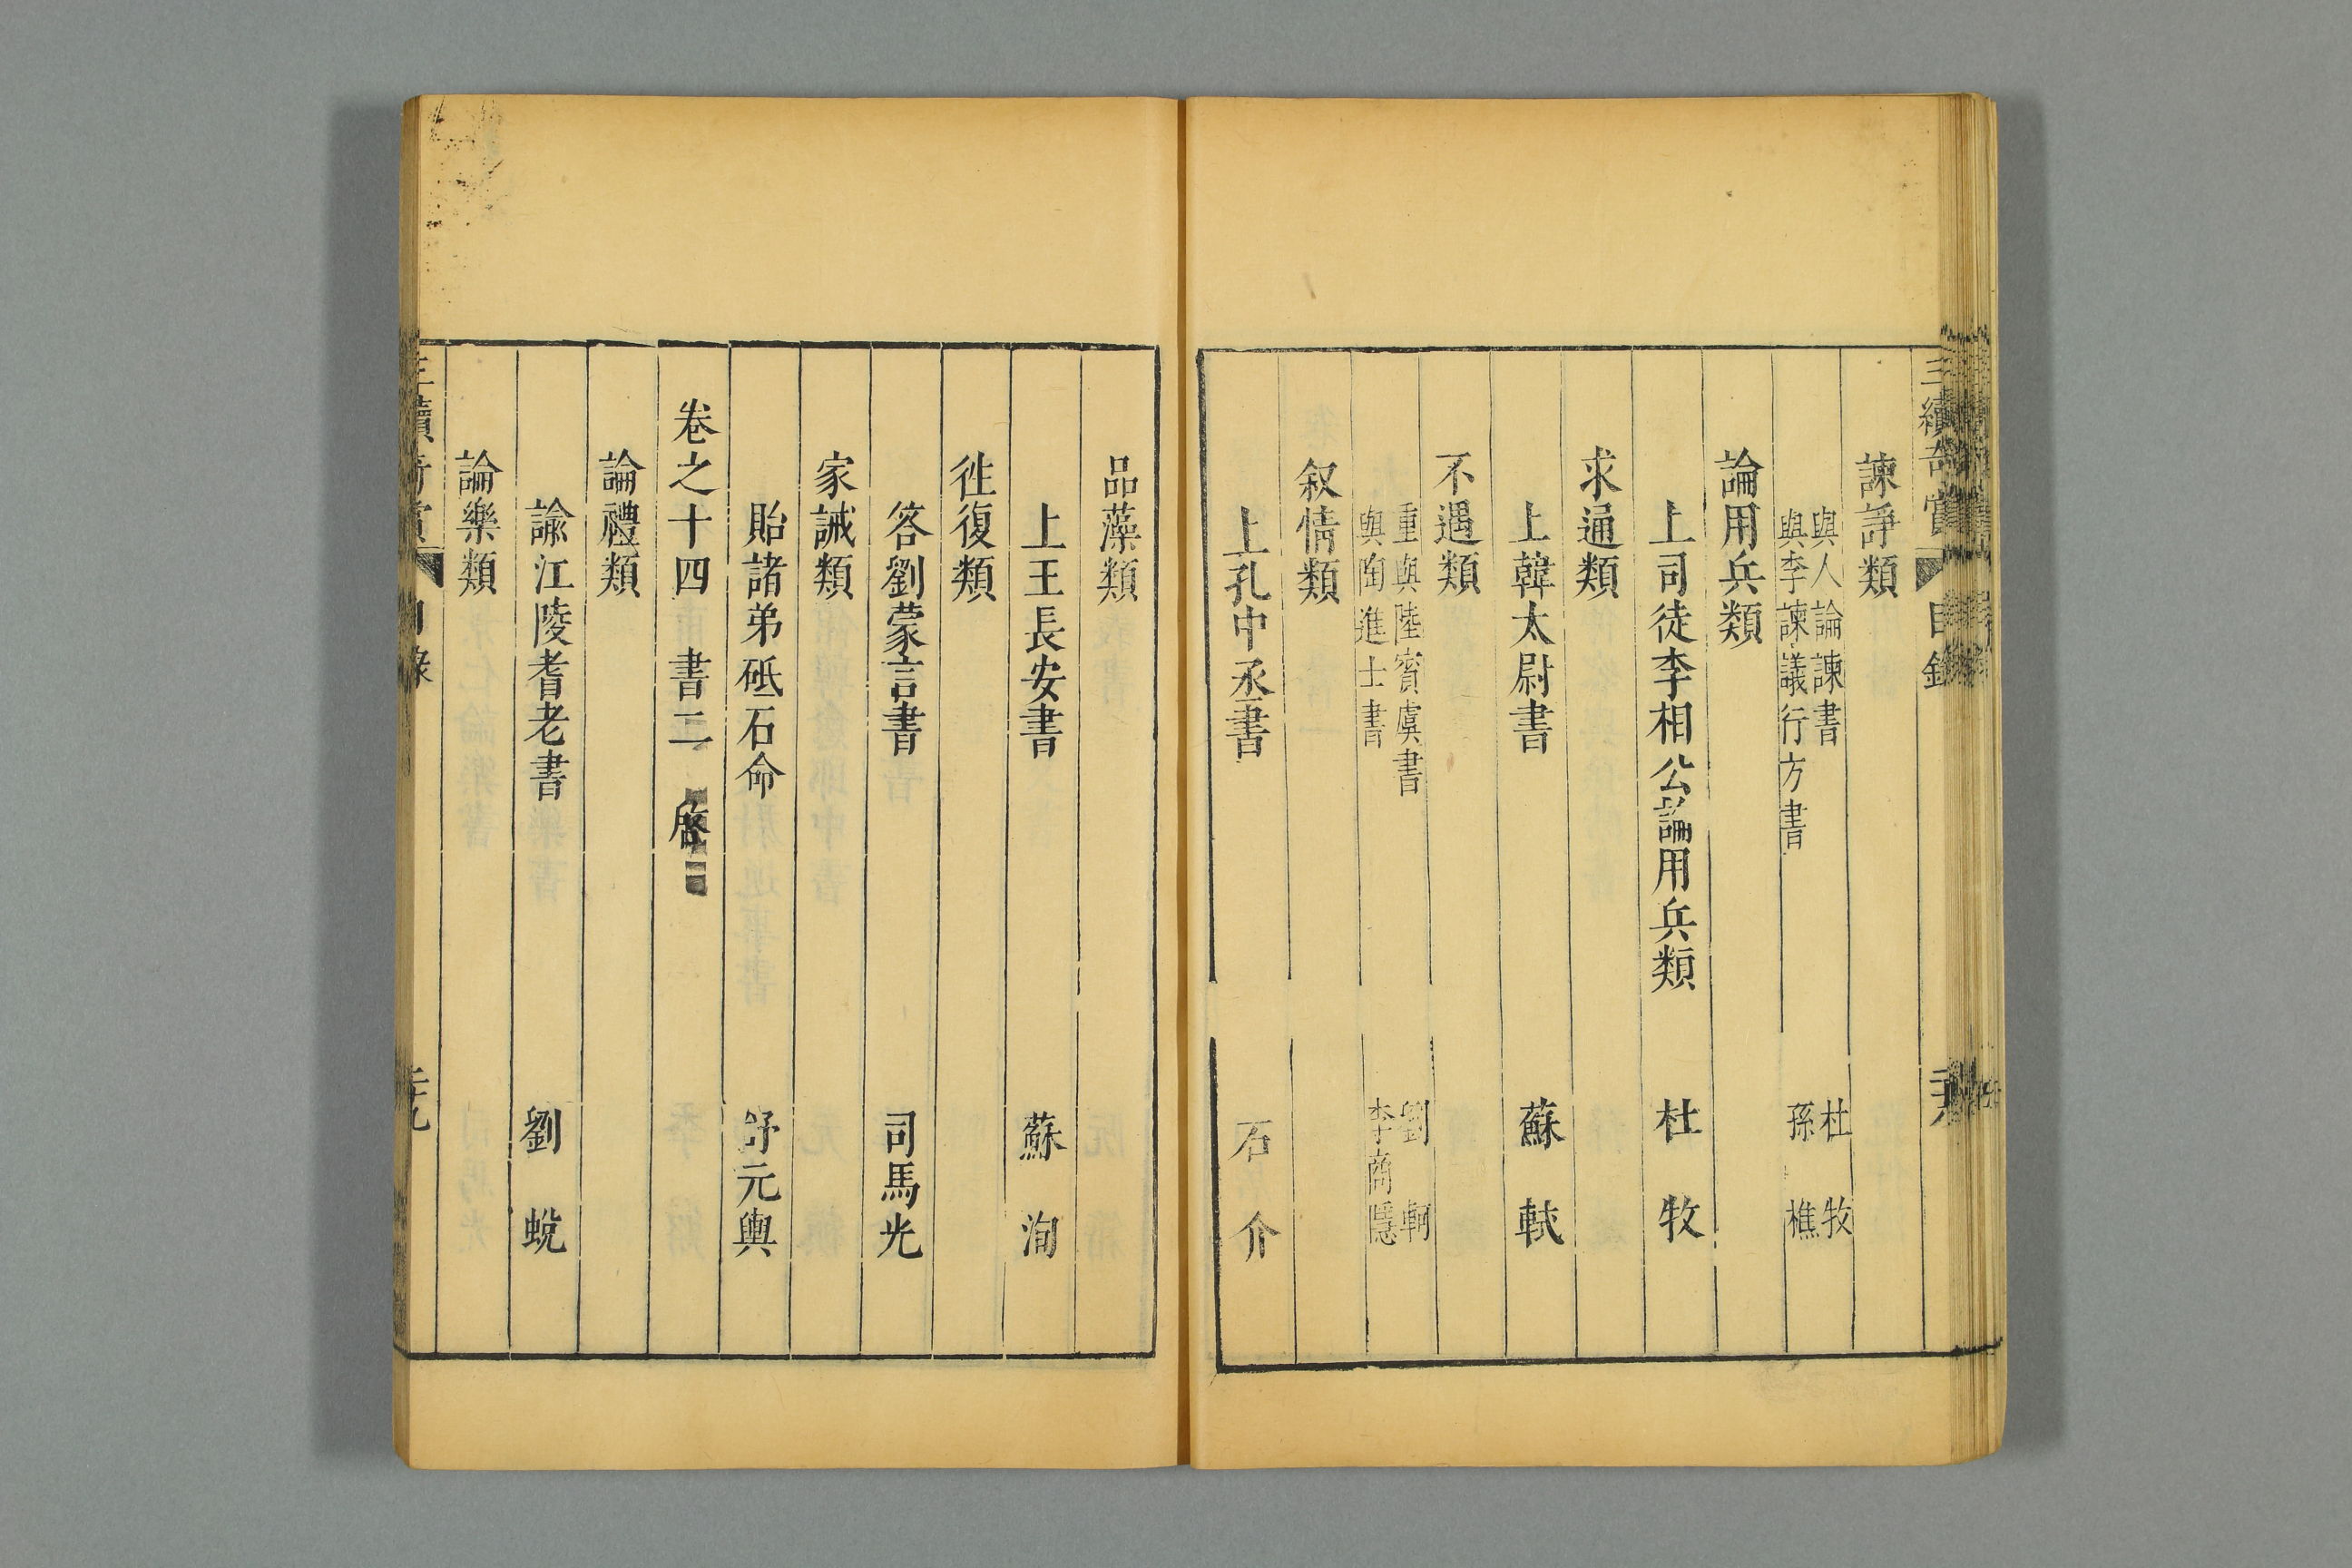 三續奇賞 目錄
諫諍類
與人論諫書 杜牧
與李諫議行方書 孫樵
論用兵類
上司徒李相公論用兵類 杜牧
求通類
上韓太尉書 蘇軾
不遇類
重與陸賓虞書 劉軻
與陶進士書 李商隱
叙情類
上孔中丞書 石介
品藻類
上王長安書 蘇洵
徃復類
答劉蒙言書 司馬光
家誡類
貽諸弟砥石命 舒元輿
卷之十四 書二 啓
論禮類
諭江陵耆老書 劉蛻
論樂類
三續奇賞 目錄